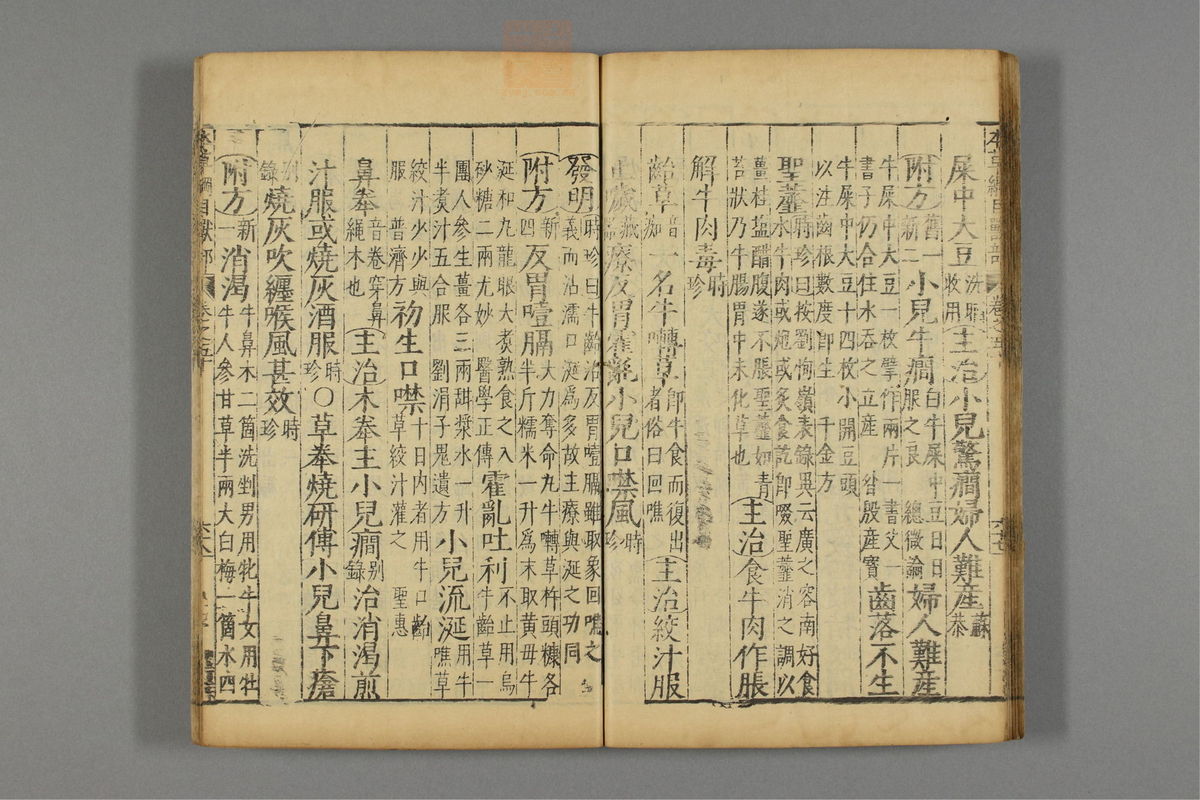 屎中大豆洗晒收用主治小兒驚癇婦人難產蘇恭
附方舊一新二小兒牛癇白牛屎中豆日日服之良 總微論婦人難產
牛屎中大豆一枚擘作兩片一書父一
書子仍合住水吞之立產 昝殷產寶齒落不生
牛屎中大豆十四枚小開豆頭
以注齒根數度即生 千金方
聖虀時珍曰按劉恂嶺表錄異云廣之容南好食
水牛肉或炮或炙食訖即啜聖虀消之調以
薑桂塩醋腹遂不脹聖虀如青
苔狀乃牛腸胃中未化草也主治食牛肉作脹
解牛肉毒時珍
齝草音癡一名牛囀草即牛食而復出者俗曰回噍主治絞汁服
止噦藏器療反胃霍亂小兒口噤風時珍
發明時珍曰牛齝治反胃噎膈雖取象回嚼之
義而沾濡口涎爲多故主療與涎之功同
附方新四反胃噎膈大力奪命丸牛囀草杵頭糠各
半斤糯米一升爲末取黃母牛
涎和丸龍眼大煮熟食之入
砂糖二兩尤妙 醫學正傳霍亂吐利不止用烏牛齝草一
團人參生薑各三兩甜漿水一升
半煮汁五合服 劉涓子鬼遺方小兒流涎用牛噍草
絞汁少少與
服 普濟方初生口噤十日內者用牛口齝草絞汁灌之 聖惠
鼻桊音卷穿鼻繩木也主治木桊主小兒癇別錄治消渴煎
汁服或燒灰酒服時珍○草桊燒研傅小兒鼻下瘡
別錄燒灰吹纏喉風甚效時珍
附方新一消渴牛鼻木二箇洗剉男用牝牛女用牡
牛人參甘草半兩大白梅一箇水四